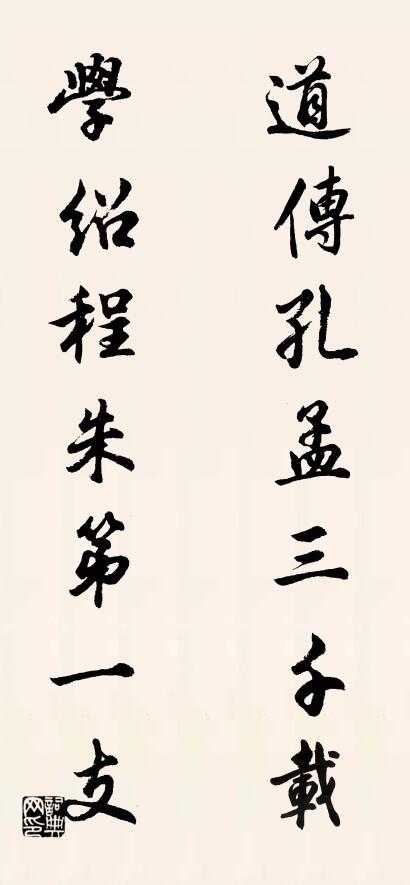 道傳孔孟三千載
學紹程朱第一支